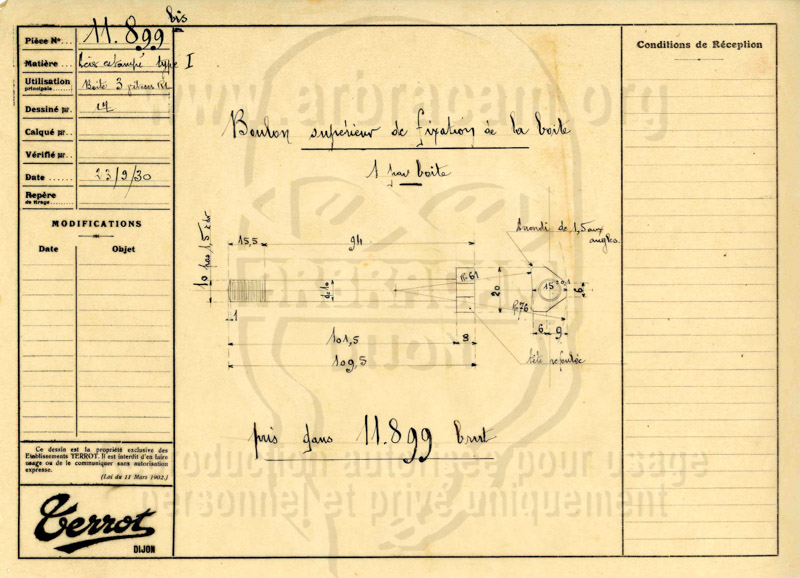 bis
Pièce No... 11.899
Matière... étampé type I
Utilisation
principale... Boîte 3 vitesses
Dessiné pr.
Calqué pr...
Vérifié pr...
Date... 23/9/30
Repère
de tirage...
MODIFICATIONS
Date Objet
Ce dessin est la propriété exclusive des
Etablissements TERROT. Il est interdit d'en faire
usage ou de le communiquer sans autorisation
expresse.
(Loi du 11 Mars 1902.)
Terrot
DIJON
www.arbracam.org
Boulon supérieur de fixation de la boite
1 par boite
15,5
94
10 pas 1,5
Arrondi de 1,5 aux
angles.
R=61
20
15
6
R=76
1
101,5
8
6
9
109,5
tête refoulée
ARBRACAM
DIJON
pris dans 11.899 brut
Reproduction autorisée pour usage
personnel et privé uniquement
Conditions de Réception